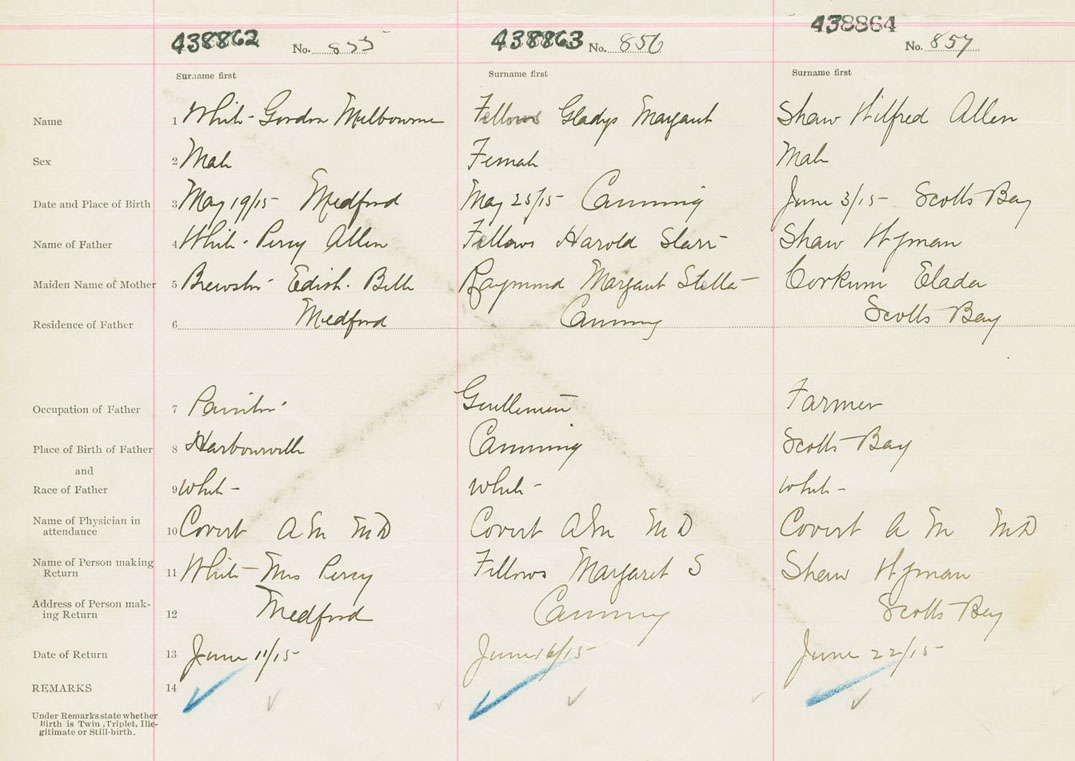 438862 No. 855 438863 No. 856 438864 No. 857
Surname first Surname first Surname first
Name 1 White Gordon Melbourne Fellows Gladys Margaret Shaw Wilfred Allen
Sex 2 Male Female Male
Date and Place of Birth 3 May 19/15 Medford May 25/15 Canning June 3/15 Scotts Bay
Name of Father 4 White Percy Allen Fellows Harold Starr Shaw Wyman
Maiden Name of Mother 5 Brewster Edith Belle Raymond Margaret Stella Corkum Elada
Residence of Father 6 Medford Canning Scotts Bay
Occupation of Father 7 Painter Gentleman Farmer
Place of Birth of Father 8 Harbourville Canning Scotts Bay
and
Race of Father 9 White White White
Name of Physician in attendance 10 Covert A M M D Covert A M M D Covert A M M D
Name of Person making Return 11 White Mrs Percy Fellows Margaret S Shaw Wyman
Address of Person mak-ing Return 12 Medford Canning Scotts Bay
Date of Return 13 June 11/15 June 16/15 June 22/15
REMARKS 14
Under Remarks state whether
Birth is Twin, Triplet, Ille-
gitimate or Still-birth.